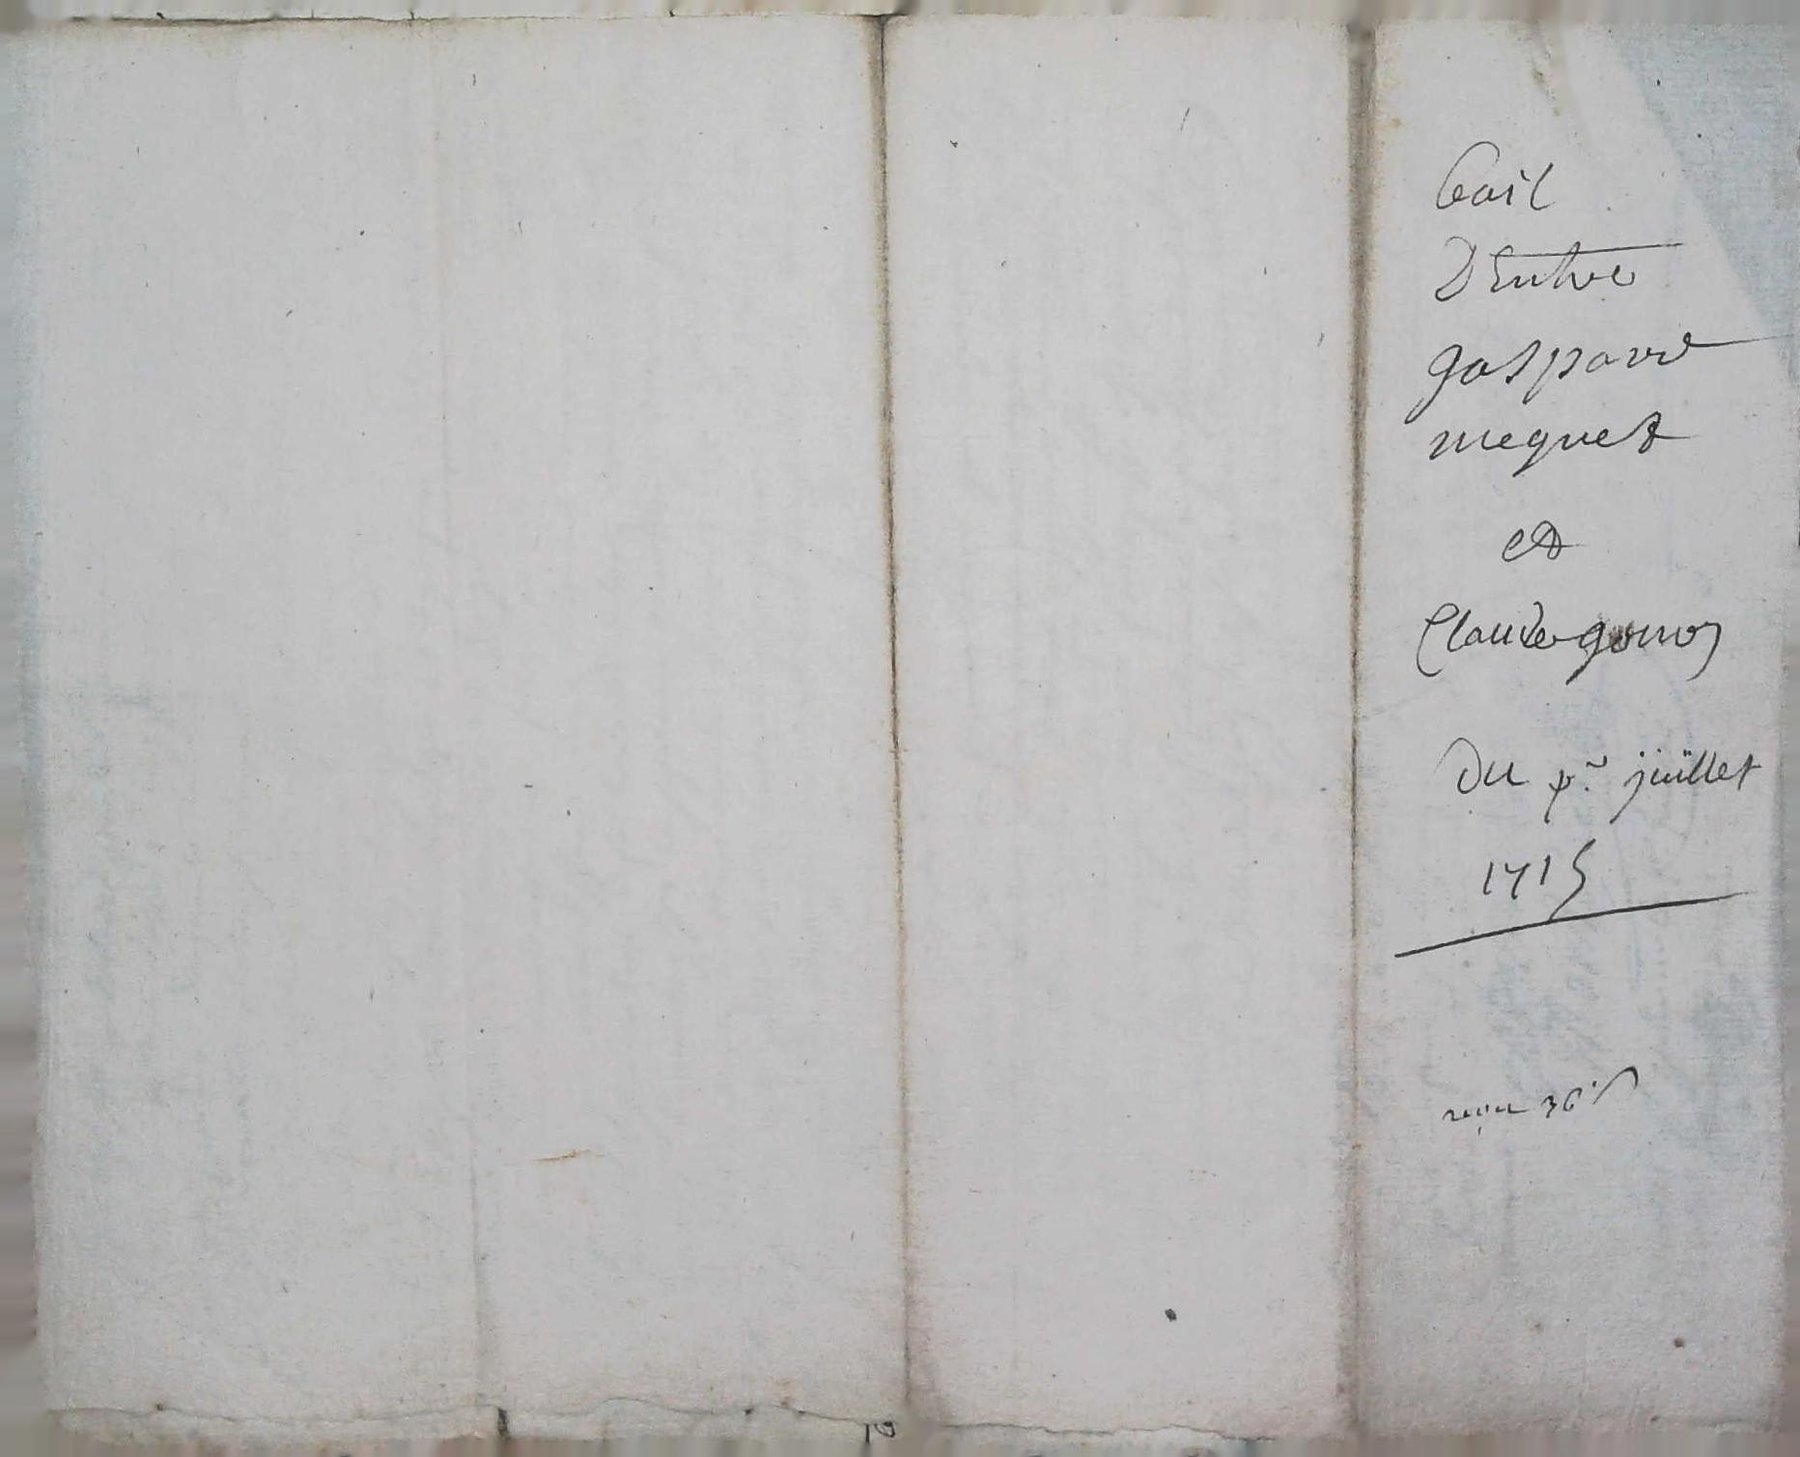 bail
D'Entre
gasparre
meguet
et
Claude
du pr. juillet
1715
reçu 36 s